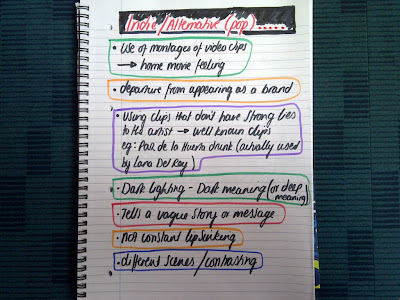 Indie/Alternative (pop).....
• Use of montages of video clips
→ home movie feeling
• departure from appearing as a brand
• Using clips that don't have strong ties
to the artist → well known clips
eg: Paz de la Huerta drunk (actually used
by Lana Del Rey)
• Dark lighting - Dark meaning (or deep
meaning)
• Tells a vague story or message
• Not constant lip sinking
• different scenes / contrasting